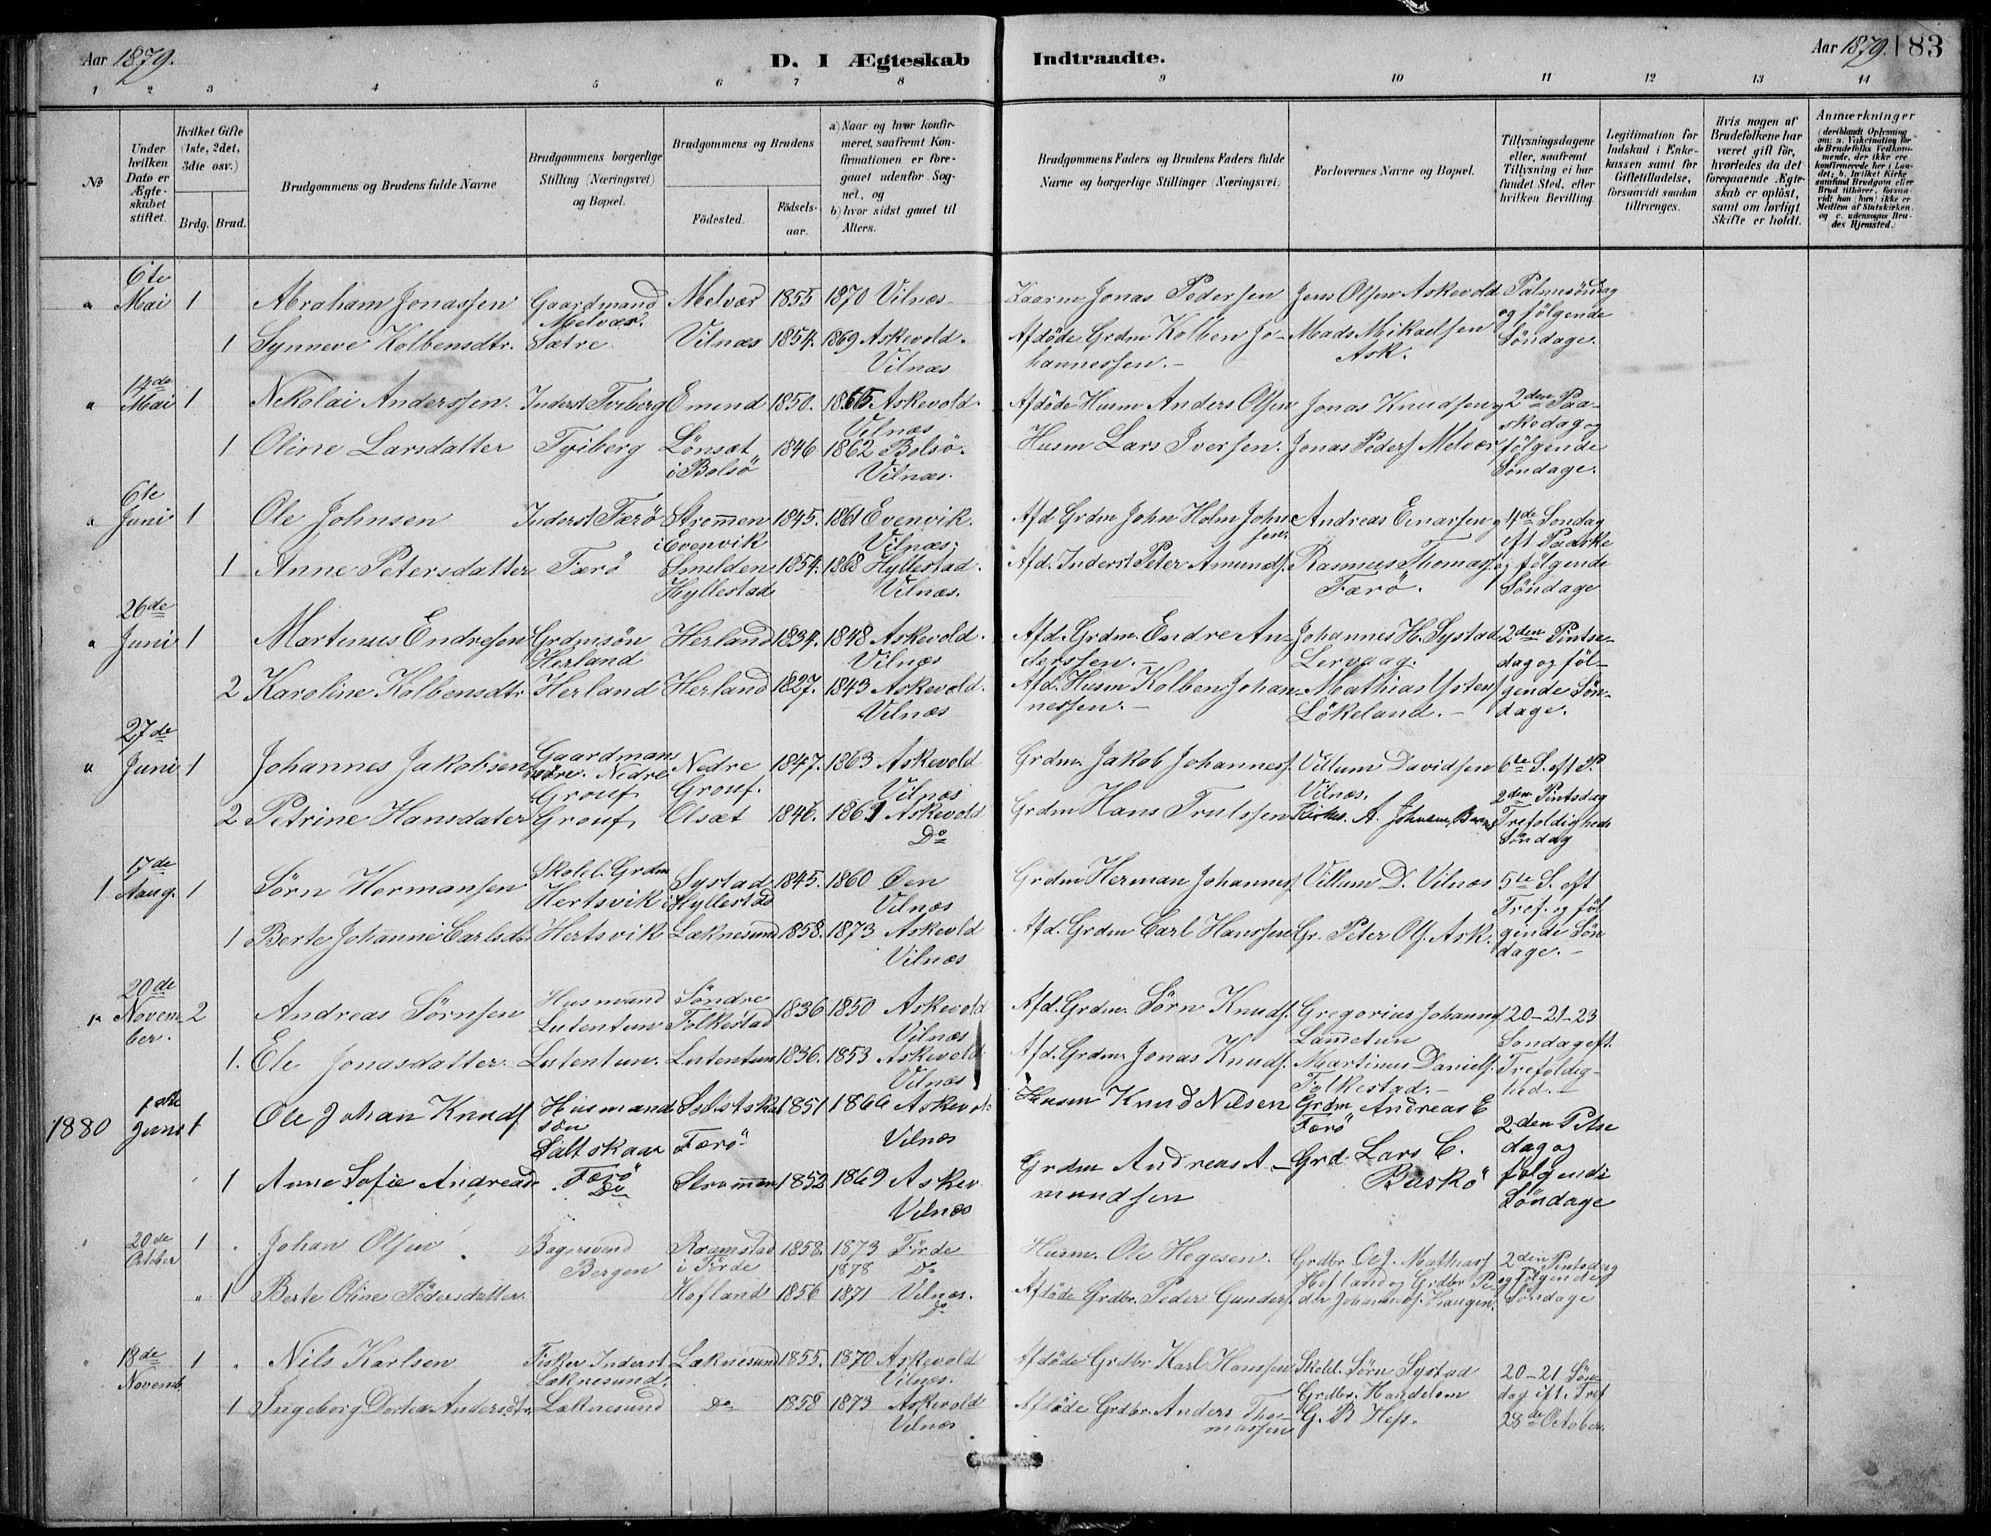 Aar 1879.
D. I Ægteskab Indtraadte.
Aar 1879. 183
1 2 3 4 5 6 7 8 9 10 11 12 13 14
No
Under hvilken Dato er Ægteskabet stiftet.
Hvilket Gifte (1ste, 2det, 3die osv.)
Brdg. Brud.
Brudgommens og Brudens fulde Navne
Brudgommens borgerlige Stilling (Næringsvei) og Bopæl.
Brudgommens og Brudens
Födested. Födsels-aar.
a) Naar og hvor konfirmeret, saafremt Konfirmationen er foregaaet udenfor Sognet, og
b) hvor sidst gaaet til Alters.
Brudgommens Faders og Brudens Faders fulde Navne og borgerlige Stillinger (Næringsvei)
Forlovernes Navne og Bopæl.
Tillysningsdagene eller, saafremt Tillysning ei har fundet Sted, efter hvilken Bevilling.
Legitimation for Indskud i Enkekassen samt for Giftetilladelse, forsaavidt saadan tiltrænges.
Hvis nogen af Brudefolkene har været gift för, hvorledes da det foregaaende Ægteskab er oplöst, samt om lovligt Skifte er holdt.
Anmærkninger
(deriblandt Oplysning om: a. Vakcination for de Brudefolks Vedkommende, der ikke ere konfirmerede her i Landet; b. hvilket Kirkesamfund Brudgom eller Brud tilhörer, forsaavidt han (hun) ikke er Medlem af Statskirken og c. udensogns Brudes Hjemsted.)
" 6te Mai 1 Abraham Jonassen Gaardmand Melvær Melvær 1855 1870 Vilnæs Jonas Pedersen Jens Olsen Askevold Palmesöndag og følgende Söndage.
1 Synneve Kolbensdtr. Sætre Vilnæs 1854. 1869 Askevold. Vilnæs Afdöde Grdm Kolben Johannessen. Mads Mikaelsen Ask.
" 14de Mai 1 Nikolai Anderssen. Inderst Tviberg 1850. 1865 Askevold. Vilnæs Afdöde Husm Anders Olsen Jonas Knudsen og 2den Paaskedag og fölgende Söndage.
1 Oline Larsdatter Tviberg Lönsæt i Bolsö 1846 1862 Bolsö. Vilnæs. Husm Lars Iversen. Jonas Peders Melvær
" 6te Juni 1 Ole Johnsen Inderst Færö Strømmen i Evenvik 1845. 1861 Evenvik. Vilnæs; Afd Grdm John Holm Johnsen. Andreas Einarsen og 4de Søndag eft Paaske og fölgende Söndage
1 Anne Petersdatter Færö Smilden Hyllestad 1854. 1868 Hyllestad. Vilnæs. Afd. Inderst Peter Amunds. Rasmus Thomas. Færö.
" 26de Juni 1 Martinus Endresen Grdmsön Herland Herland 1834. 1848 Askevold. Vilnæs Afd. Grdm. Endre Anderssen. Johannes H. Systad Lervaag. 2den Pintsedag og fölgende Söndage.
2 Karoline Kolbensdtr Herland Herland 1827. 1843 Askevold. Vilnæs Afd. Husm Kolben Johannessen. Mathias Ystens Lökeland.
" 27de Juni 1 Johannes Jakobsen Gaardman Nedre Grouf Nedre Grouf. 1847. 1863 Askevold Vilnæs Grdm. Jakob Johannes. Villum Davidsen Vilnæs. 6te S. eft P. 2den Pintsdag Trefoldigheds Söndag
2 Petrine Hansdater Grouf Olsæt 1846. 1861 Askevold Do Grdm Hans Trulssen Kirkes. A. Johnsen,
1 17de Aaug. 1 Sörn Hermansen Skolel. Grdm Hertsvik Systad i Hyllestad 1845. 1860 Øen Vilnæs Grdm Herman Johannes. Villum D. Vilnæs 5te S. eft Tref. og fölgende Söndage.
1 Berte Johanne Carlsdtr Hertsvik Laknesund 1858. 1873 Askevold Vilnæs Afd. Grdm Carl Hanssen Gr. Peter Ols. Ask.
20de November. 2 Andreas Sörnsen Husmand Lutentun Söndre Folkestad 1836 1850 Askevold Vilnæs Afd. Grdm. Sörn Knuds. Gregorius Johanns Lammetun 20-21-23 Søndag eft. Trefoldighed.
1. Ele Jonasdatter Lutentun. Lutentun 1836. 1853 Askevold. Vilnæs Afd. Grdm. Jonas Knuds. Martinus Daniels. Folkestad.
1880 1ste Juni 1 Ole Johan Knuds Husmandsøn Saltskaar Færö 1851 1866 Askevold Vilnæs Husm Knud Nilsen Grdm Andreas E Færö 2den Pitsedag og følgende Söndage
1 Anne Sofie Andreasd Færö Do Strømmen 1852 1869 Askev. Vilnæs Grdm Andreas Amundsen Grd. Lars C. Buskö
" 20de October 1 Johan Olsen Bagersvend Bergen Ramstad i Förde 1858. 1873 Förde 1878 Do Husm. Ole Hegesen. Grdbr Ole J. Mathias Hofland og Grdbr Peder Johannes. Haugen. 2den Pintsdag og fölgende Söndage
" 1 Berte Oline Pedersdatter. Hofland 1856 1871 Vilnæs. Do Afdöde Grdbr. Peder Gunders.
" 18de Novemb. 1 Nils Karlsen Fisker Inderst Laknesund. Laknesund 1855. 1870 Askevold Vilnæs. Afdöde Grdbr Karl Hanssen Skolel. Sörn Systad 20-21 Söndag eft. Tref 28de October.
1 Ingeborg Dortea Andersdtr. Laknesund do 1858 1873 Askevold Vilnæs Afdöde Grdbr. Anders Thomassen Grdbr. Handelsm G. B.